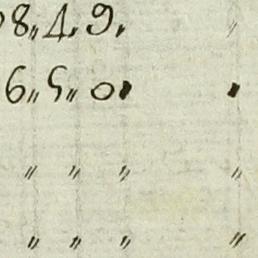 8〃4〃9〃 〃
6〃5〃0〃 〃
〃 〃 〃 〃
〃 〃 〃 〃